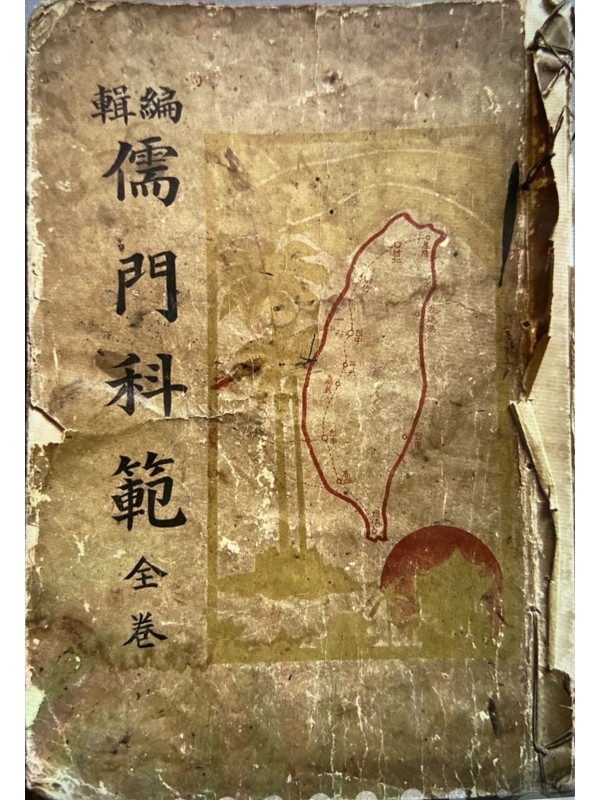 編輯
儒門科範
全卷